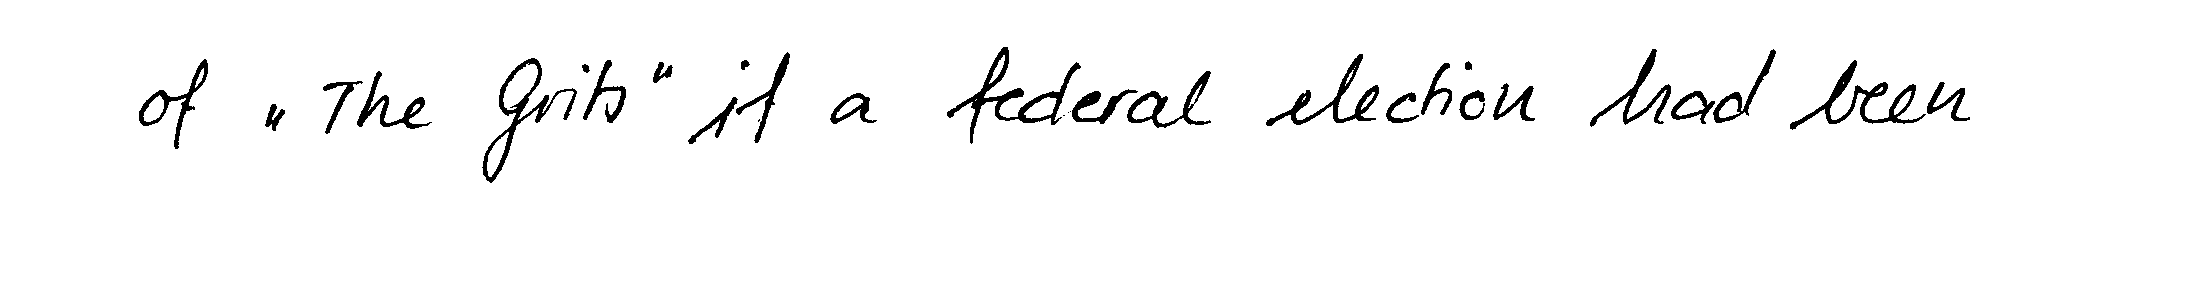 of „The Grits" if a federal election had been